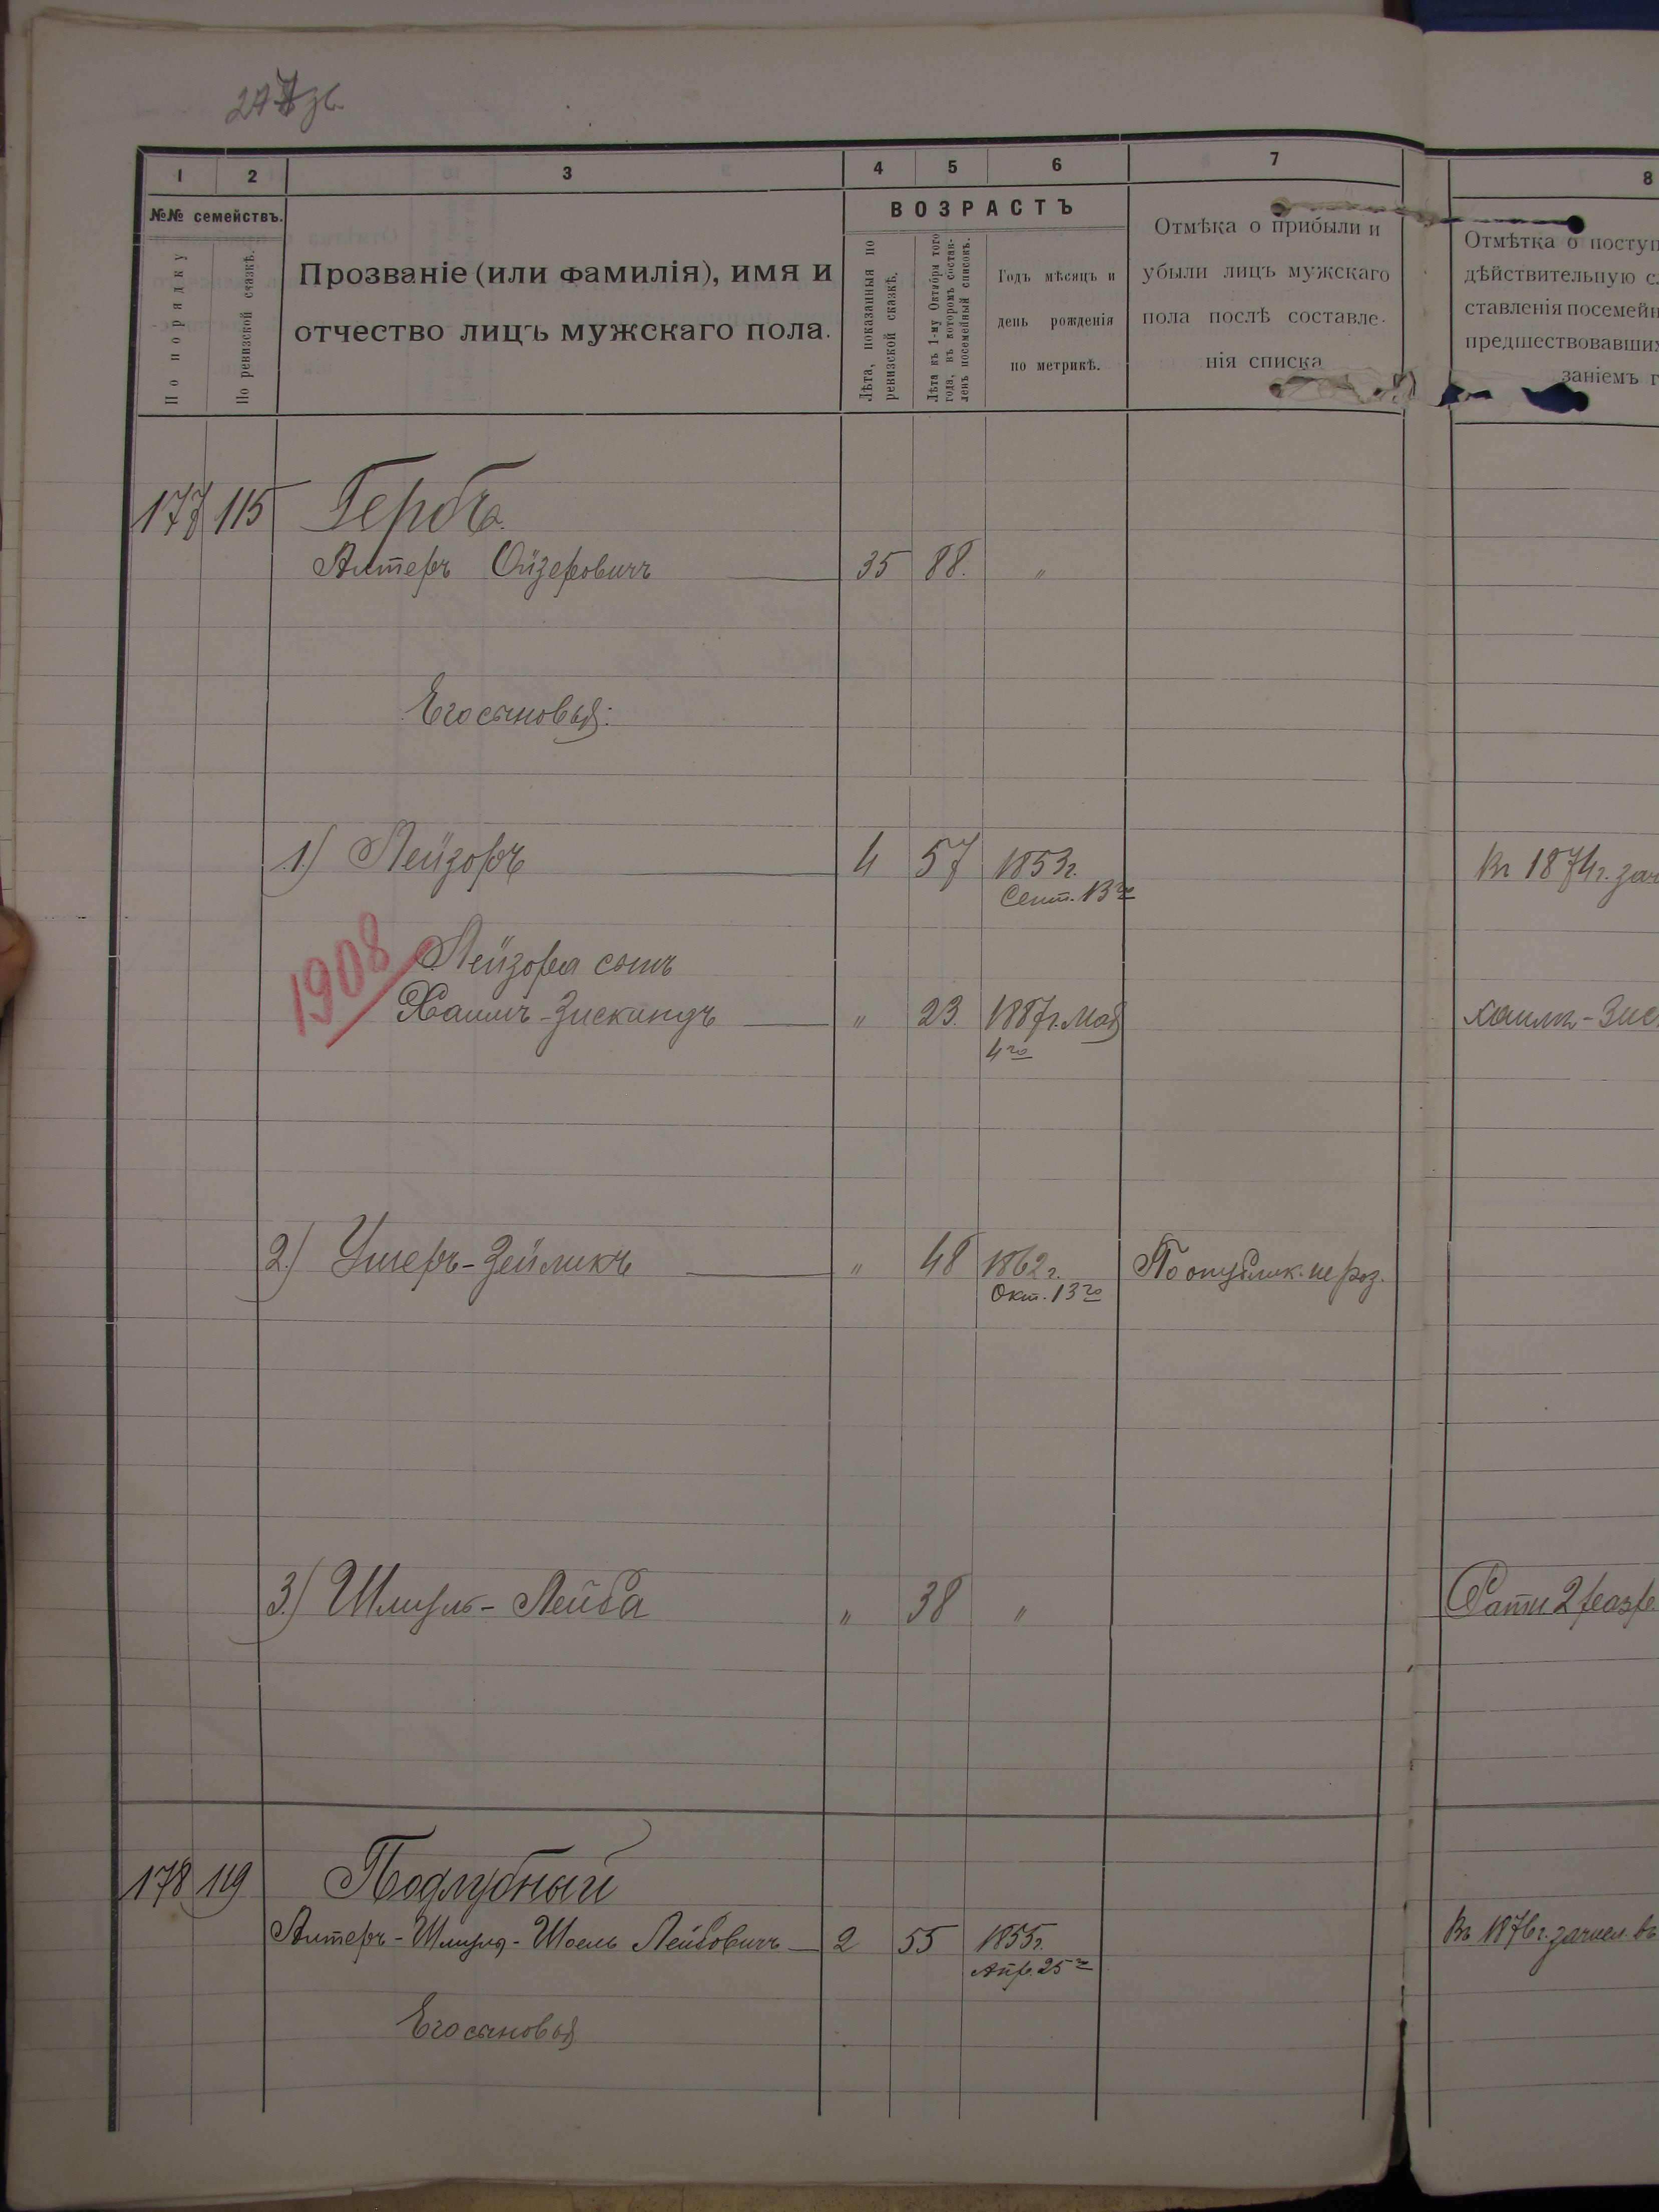 1 2 3 4 5 6 7 8
№№ семействъ.
По порядку
По ревизской сказкѣ.
Прозваніе (или фамилія), имя и
отчество лицъ мужскаго пола.
ВОЗРАСТЪ
Лѣта, показанныя по
ревизской сказкѣ.
Лѣта къ 1-му Октября того
года, въ которомъ состав-
ленъ посемейный списокъ.
Годъ мѣсяцъ и
день рожденія
по метрикѣ.
Отмѣка о прибыли и
убыли лицъ мужскаго
пола послѣ составле-
нія списка
Отмѣтка о поступ
дѣйствительную сл
ставленія посемейн
предшествовавших
заніемъ г
177 115 Гербъ.
Алтеръ Ойзеровичъ 35 88. "
Его сыновья:
1) Лейзоръ 4 57 1853г. Въ 1874г. зач
Сент. 13го
1908 Лейзора сынъ
Хаимъ-Зискиндъ " 23. 1887г. Мая Хаимъ-Зис
4го
2.) Ушеръ-Зейликъ " 48 1862г. По опублик. не роз.
Окт. 13го
3.) Шмуль-Лейба " 38 " Ратн. 2 разр.
178 119 Подлубный
Алтеръ-Шмуль-Шоель Лейбовичъ 2 55 1855г. Въ 1876г. зачисл. въ
Апр. 25го
Его сыновья